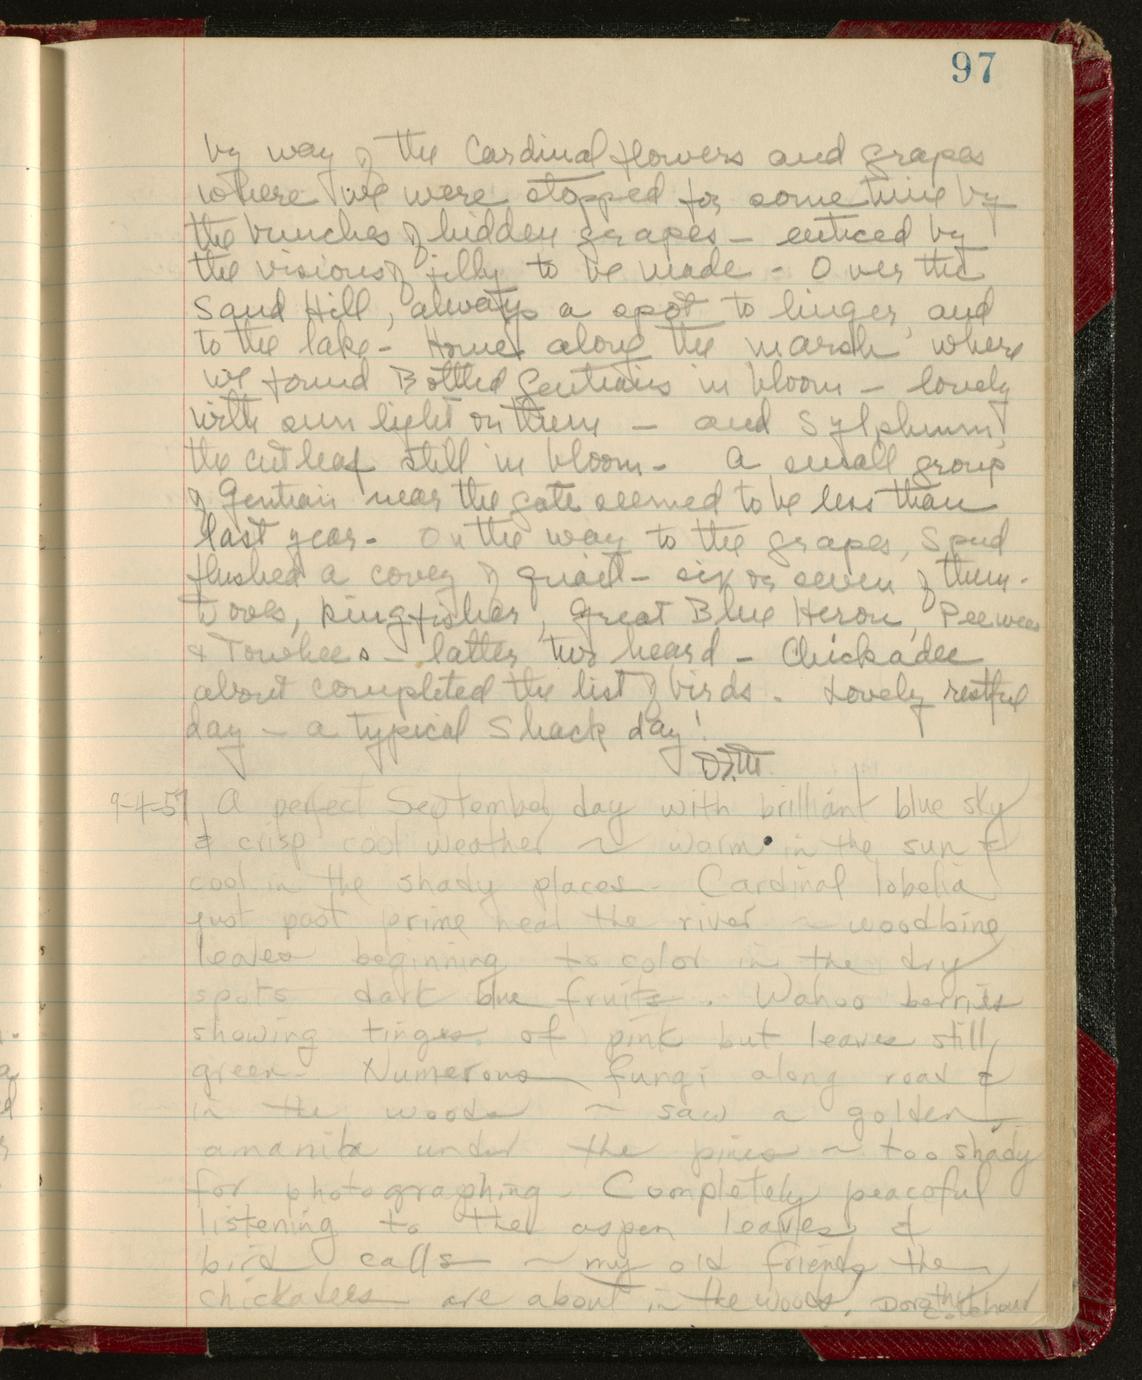 97
by way of the Cardinal flowers and grapes
where we were stopped for some time by
the bunches of hidden grapes - enticed by
the visions of jelly to be made - Over the
Sand Hill, always a spot to linger, and
to the lake - Home along the marsh where
we found Bottled Gentians in bloom - lovely
with sun light on them - and Sylphium,
the cut leaf still in bloom - A small group
of Gentian near the gate seemed to be less than
last year. On the way to the grapes, Spud
flushed a covey of quail - six or seven of them.
Doves, Kingfisher, Great Blue Heron, Peewees
& Towhees - latter two heard - Chickadee
about completed the list of birds. Lovely restful
day - a typical Shack day!
9-4-57 A perfect September day with brilliant blue sky
& crisp cool weather ~ warm in the sun &
cool in the shady places. Cardinal lobelia
just past prime near the river ~ woodbine
leaves beginning to color in the dry
spots dark blue fruits. Wahoo berries
showing tinges of pink but leaves still
green. Numerous fungi along road &
in the woods ~ saw a golden
amanita under the pines ~ too shady
for photographing. Completely peaceful
listening to the aspen leaves &
bird calls ~ my old friends the
chickadees are about in the woods. Dorothy